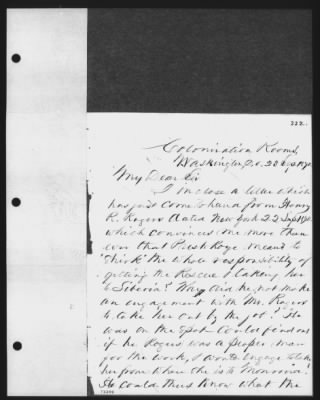 222.
Colonization Rooms,
Washington, D.C. 28 Sept 187
My Dear Sir
I inclose a letter which
has just come to hand from Henry
R. Rogers dated New York 22 Sept 187
which convinces me more than
ever that Prest Roye means to
"shirk" the whole responsibility of
getting the Rescue & taking her
to Liberia! Why did he not make
an engagement with Mr. Rogers
to take her out by the job? He
was on the spot could find out
if he Rogers was a proper man
for the work, & could engage to take
her from where she is to Monrovia!
He could thus know what the